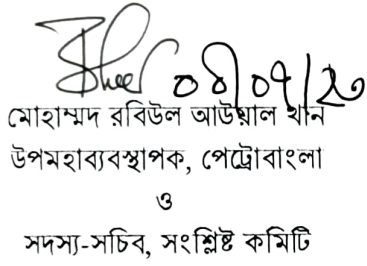 মোহাম্মদ রবিউল আউয়াল খান
উপমহাব্যবস্থাপক, পেট্রোবাংলা
ও
সদস্য-সচিব, সংশ্লিষ্ট কমিটি